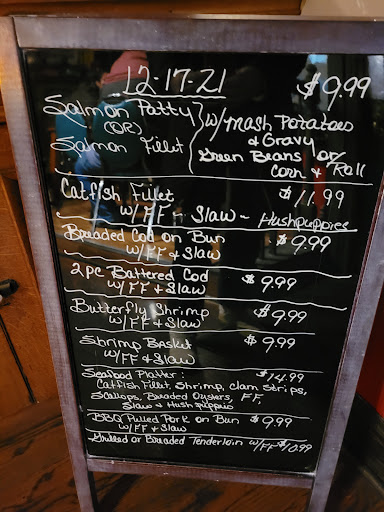 12-17-21 $9.99
Salmon Patty
(OR)
Salmon Fillet
w/mash Potatoes
& Gravy
Green Beans or
Corn & Roll
Catfish Fillet $11.99
w/FF - Slaw - Hushpuppies
Breaded Cod on Bun $9.99
w/FF & Slaw
2pc Battered Cod $9.99
w/FF & Slaw
Butterfly Shrimp $9.99
w/FF & Slaw
Shrimp Basket $9.99
w/FF & Slaw
Seafood Platter: $14.99
Catfish Fillet, Shrimp, Clam Strips,
Scallops, Breaded Oysters, FF,
Slaw & Hush puppie
BBQ Pulled Pork on Bun $9.99
w/FF & Slaw
Grilled or Breaded Tenderloin w/FF $10.99